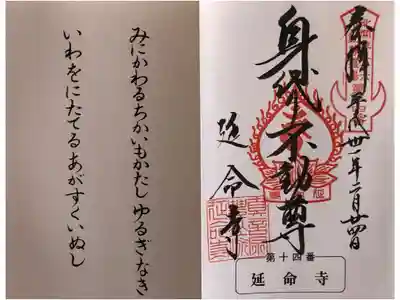 奉拝 平成卅一年二月廿四日
身代不動尊
延命寺
第十四番
延命寺
みにかわるちかいもかたし ゆるぎなき
いわをにたてるあがすくいぬし